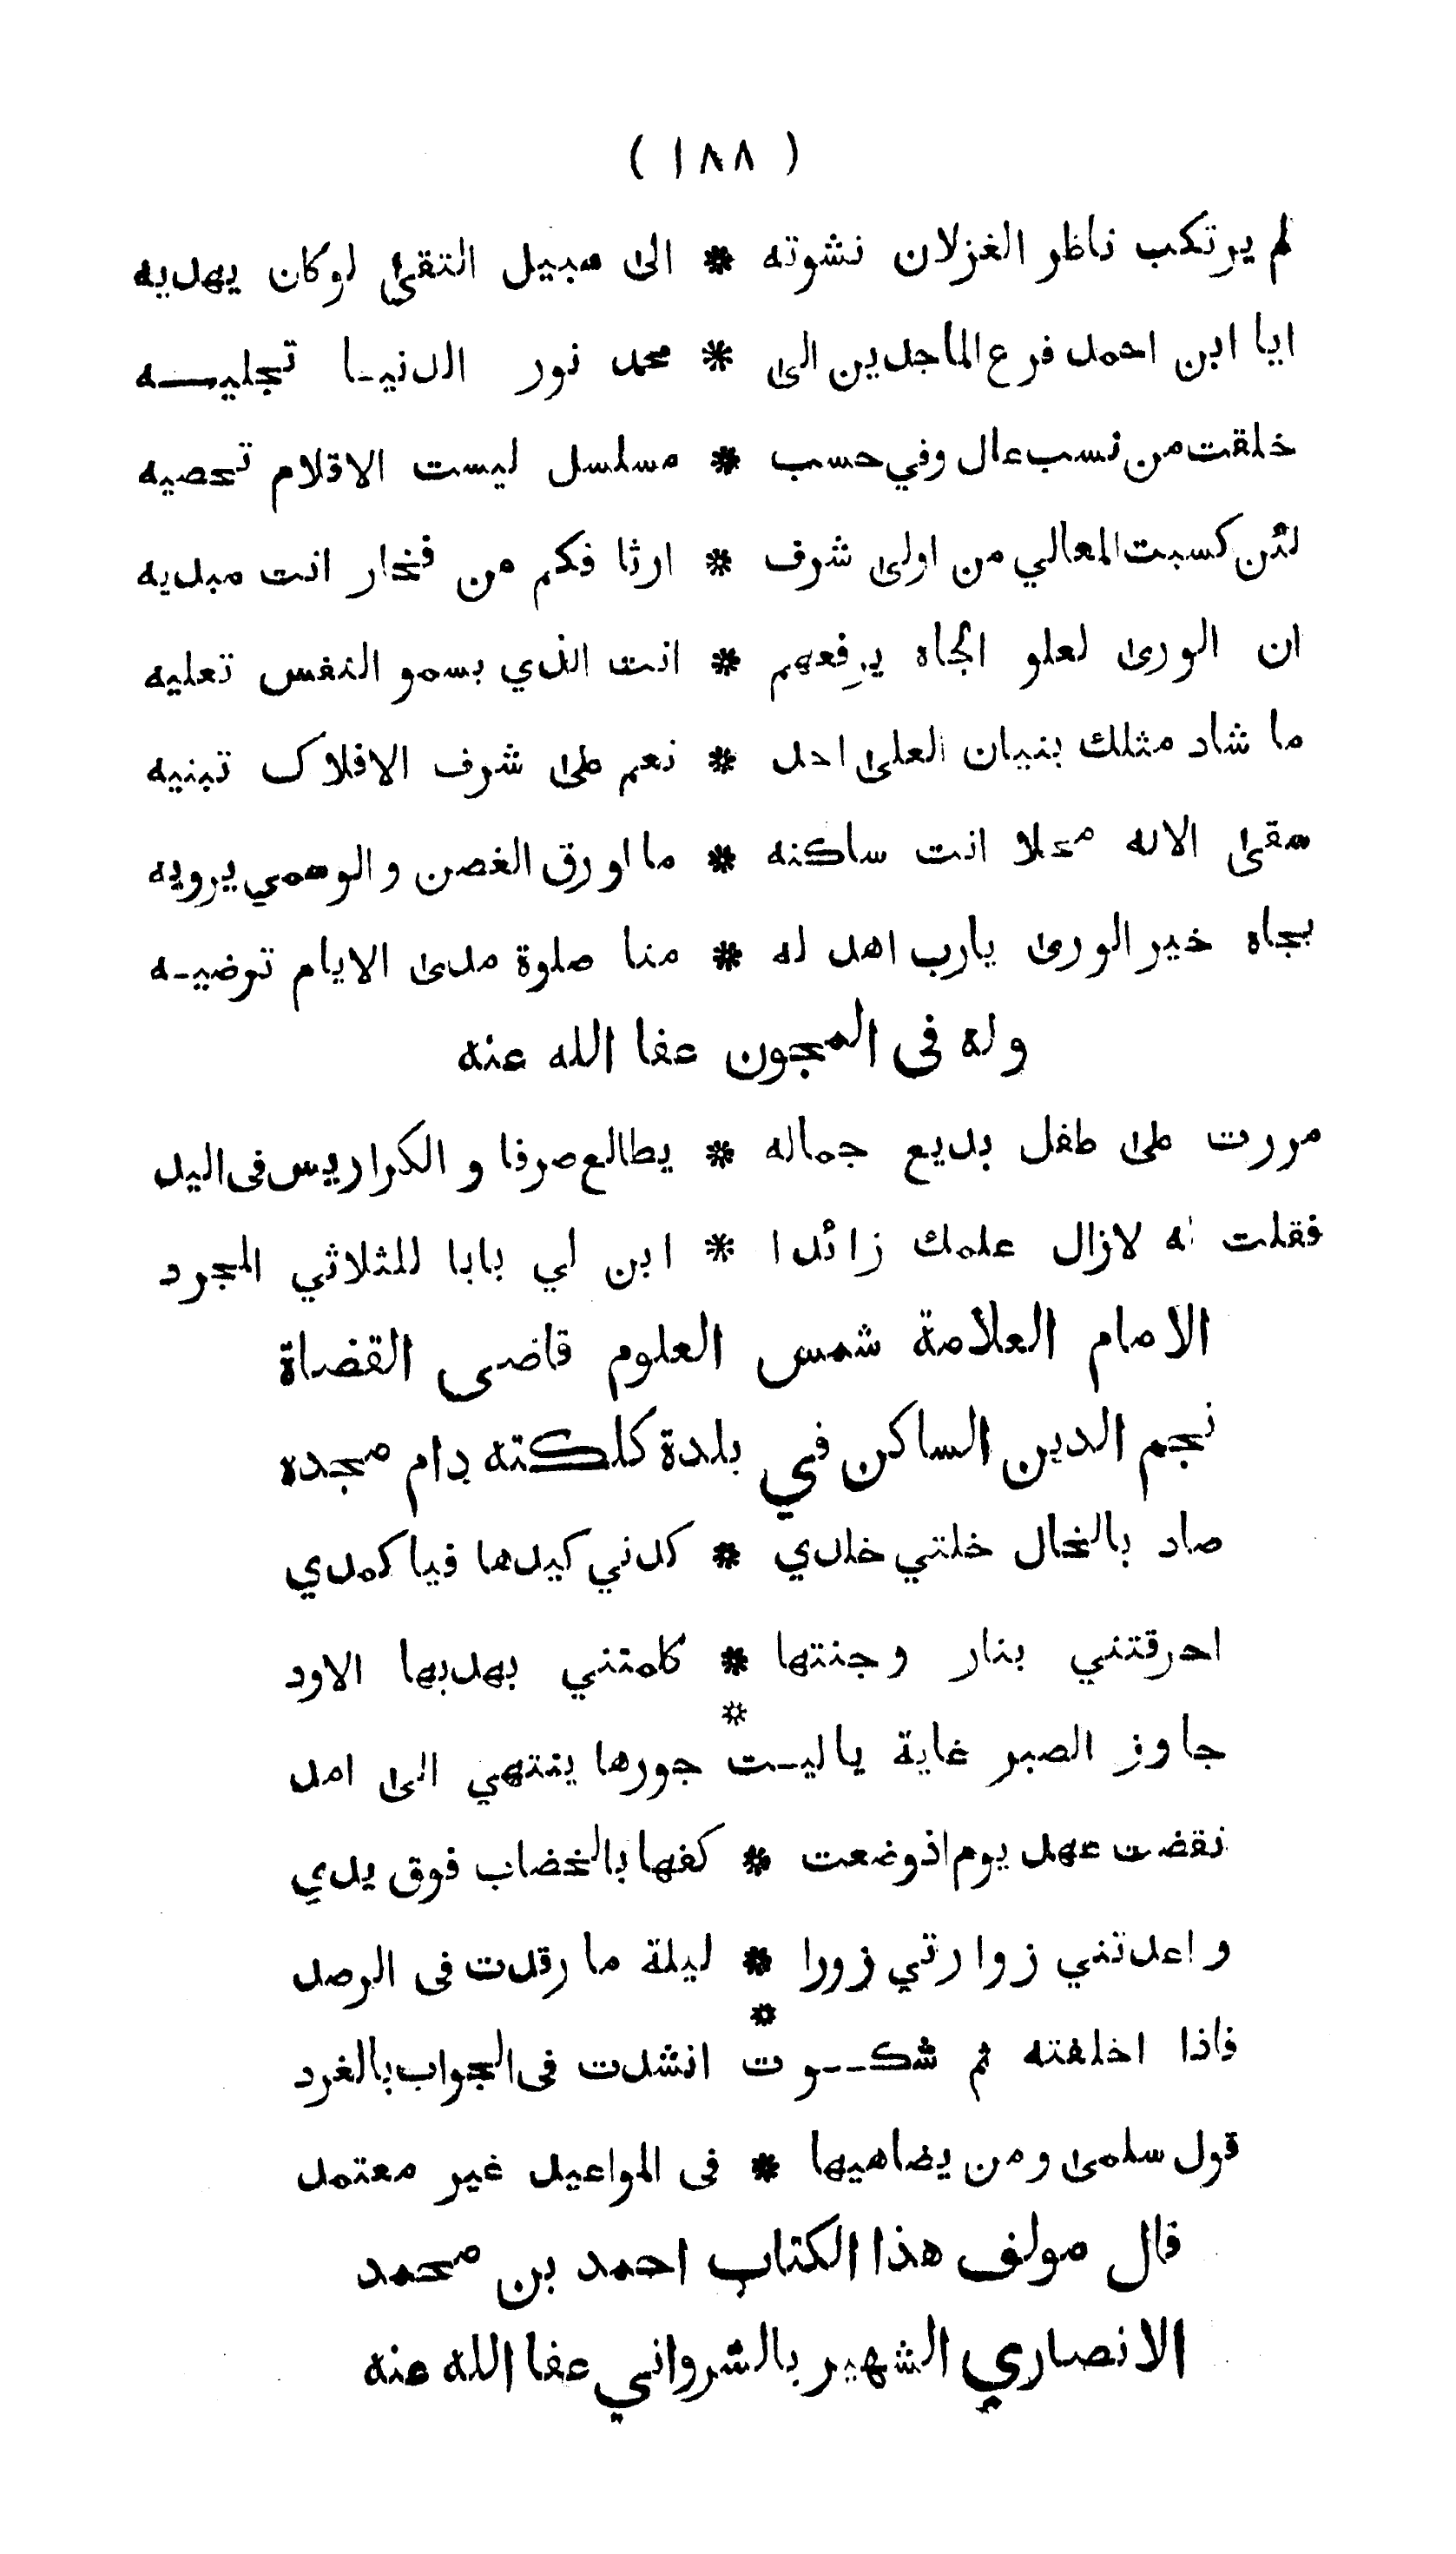 ( ١٨٨ )
لم يرتكب ناظر الغزلان نشوته * الى سبيل التقى لوكان يهديه
ايا ابن احمد فرع الماجدين الى * محمد نور الدنيـا تجليـــه
خلقت من نسب عال وفي حسب * مسلسل ليست الاقلام تحصيه
لئن كسبت المعالي من اولى شرف * ارثا فكم من فخار انت مبديه
ان الورى لعلو الجاه يرفعهم * انت الذي بسمو النفس تعليه
ما شاد مثلك بنيان العلى احد * نعم على شرف الافلاك تبنيه
سقى الاله محلا انت ساكنه * ما اورق الغصن والوسمي يرويه
بجاه خير الورى يارب اهد له * منا صلوة مدى الايام ترضيـه
وله فى المجون عفا الله عنه
مررت على طفل بديع جماله * يطالع صرفا و الكراريس فى اليد
فقلت له لازال علمك زائدا * ابن لي بابا للثلاثي المجرد
الامام العلامة شمس العلوم قاضى القضاة
نجم الدين الساكن في بلدة كلكته دام مجده
صاد بالخال خلتي خلدي * كدني كيدها فيا كمدي
احرقتني بنار وجنتها * كلمتني بهدبها الاود
جاوز الصبر غاية ياليـت * جورها ينتهي الى امد
نقضت عهد يوم اذ وضعت * كفها بالخضاب فوق يدي
واعدتني زوارتي زورا * ليلة ما رقدت فى الرصد
فاذا اخلفته ثم شكــوت * انشدت فى الجواب بالغرد
قول سلمى ومن يضاهيها * فى المواعيد غير معتمد
قال مولف هذا الكتاب احمد بن محمد
الانصاري الشهير بالشرواني عفا الله عنه